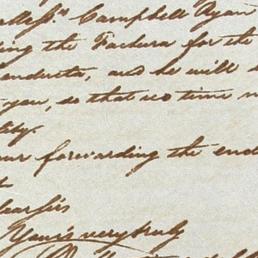 Messrs Campbell Ryan
ing the Factura for the
onducta, and he will
you, so that no time
ity.
our forwarding the
Dear Sirs
Yours very truly